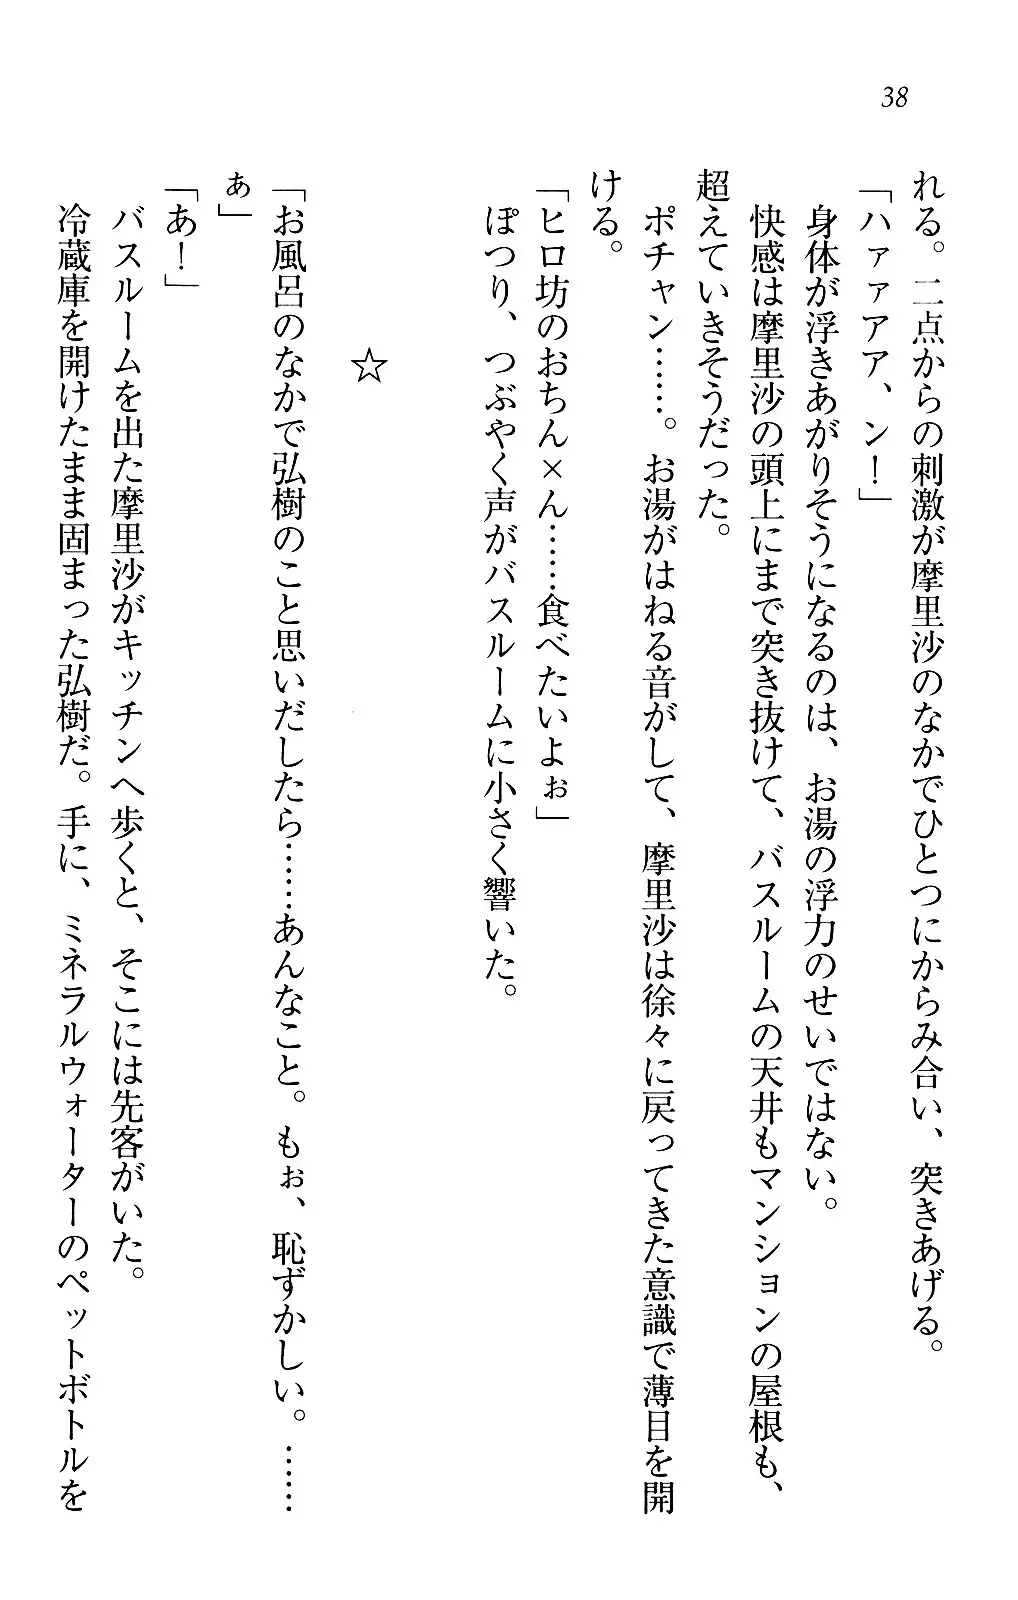 38
れる。二点からの刺激が摩里沙のなかでひとつにからみ合い、突きあげる。
「ハァァアア、ン！」
身体が浮きあがりそうになるのは、お湯の浮力のせいではない。
快感は摩里沙の頭上にまで突き抜けて、バスルームの天井もマンションの屋根も、
超えていきそうだった。
ポチャン……。お湯がはねる音がして、摩里沙は徐々に戻ってきた意識で薄目を開
ける。
「ヒロ坊のおちん×ん……食べたいよぉ」
ぽつり、つぶやく声がバスルームに小さく響いた。
☆
「お風呂のなかで弘樹のこと思いだしたら……あんなこと。もぉ、恥ずかしい。……
ぁ」
「あ！」
バスルームを出た摩里沙がキッチンへ歩くと、そこには先客がいた。
冷蔵庫を開けたまま固まった弘樹だ。手に、ミネラルウォーターのペットボトルを